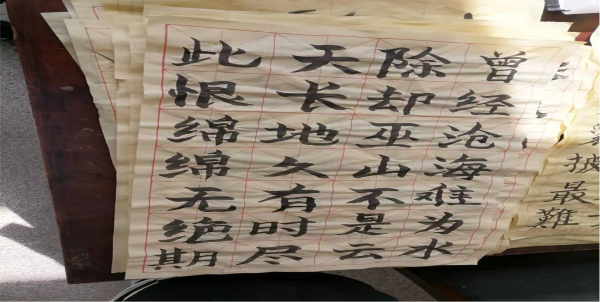 曾经沧海难为水
除却巫山不是云
天长地久有时尽
此恨绵绵无绝期
披最難